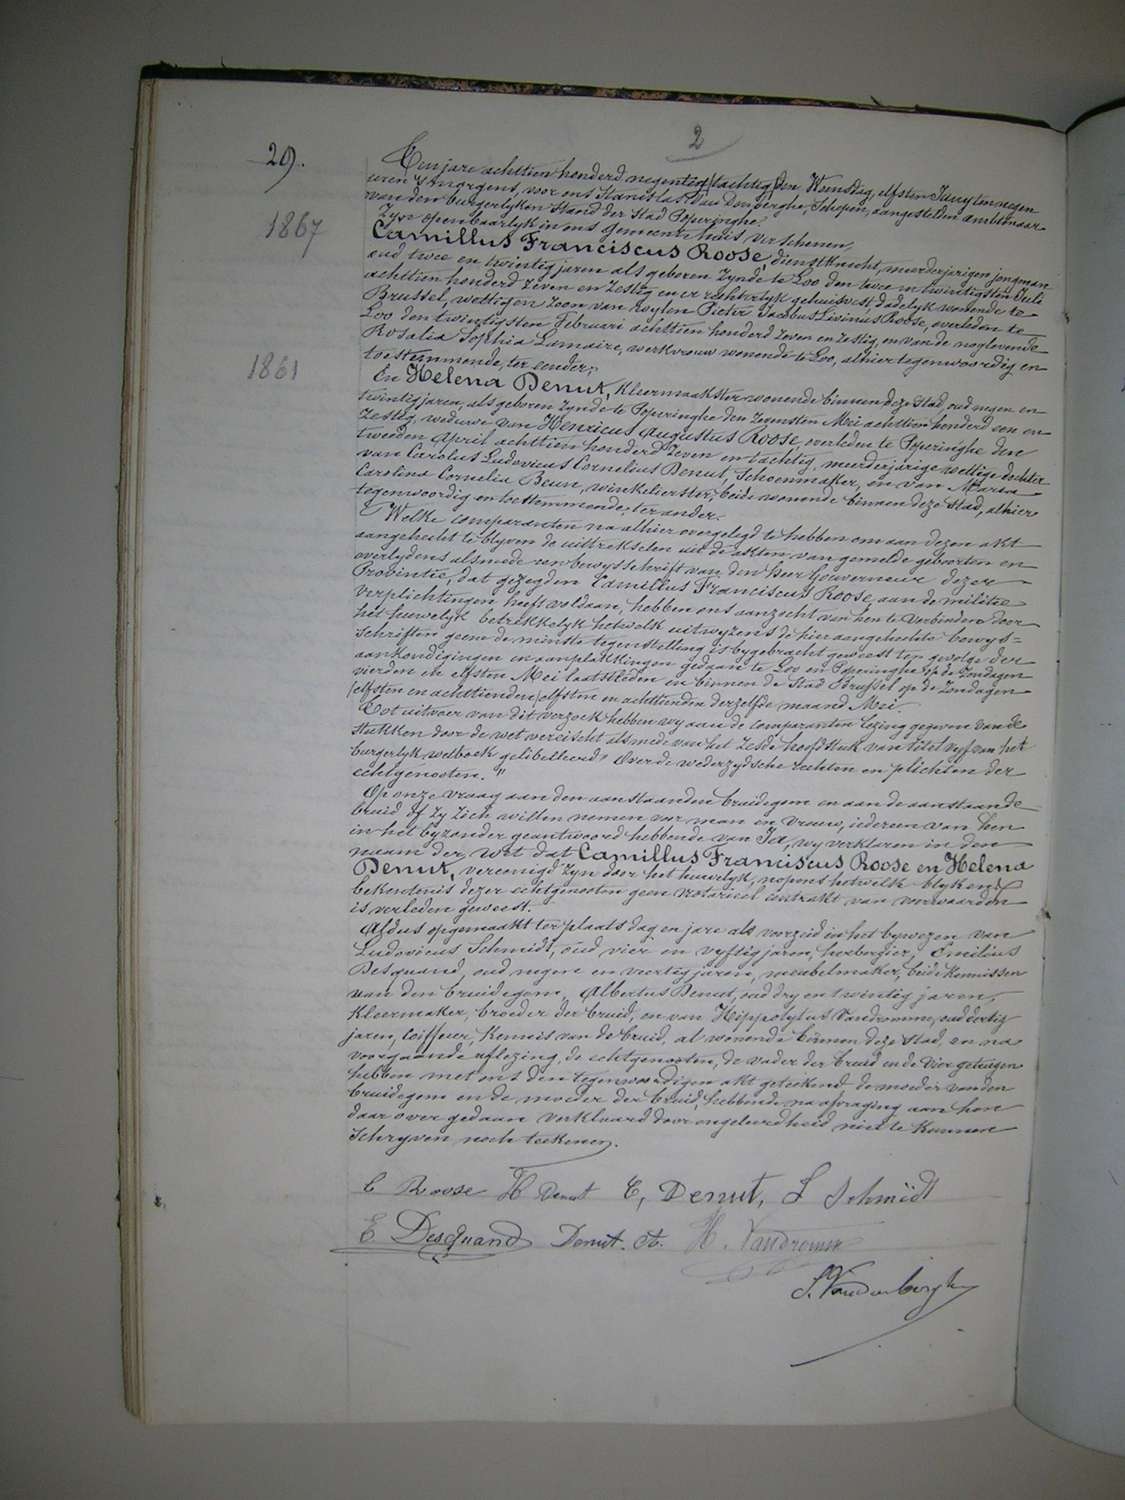 2
29.
1867
1861
Ten jare achttien honderd negentig /tachtig/ den Woensdag, elfsten Juny ten negen
uren 's morgens, voor ons Stanislas Van den berghe, Schepen, aangestelden ambtenaar
van den burgerlyken stand der Stad Poperinghe.
Zyn openbaarlyk in ons Gemeentehuis verschenen,
Camillus Franciscus Roose, dienstknecht, meerderjarigen jongman
oud twee en twintig jaren als geboren zynde te Loo den twee en twintigsten Juli
achttien honderd zeven en zestig en er rechterlyk gehuisvest, dadelyk wonende te
Brussel, wettigen zoon van wylen Pieter Jacobus Livinus Roose, overleden te
Loo den twintigsten Februari achttien honderd zeven en zestig, en van de noglevende
Rosalia Sophia Lamaire, werkvrouw wonende te Loo, alhier tegenwoordig en
toestemmende, ter eender;
En Helena Denut, Kleermaakster wonende binnen deze stad, oud negen en
twintig jaren, als geboren zynde te Poperinghe den zevensten Mei achttien honderd een en
zestig, weduwe van Henricus Augustus Roose, overleden te Poperinghe den
tweeden April achttien honderd zeven en tachtig, meerderjarige wettige dochter
van Carolus Ludovicus Cornelius Denut, Schoenmaker, en van Maria
Carolina Cornelia Beun, winkelierster, beide wonende binnen deze stad, alhier
tegenwoordig en toestemmende, ter ander.
Welke comparanten na alhier overgelegd te hebben om aan dezen akt
aangehecht te blyven de uittrekselen uit de akten van gemelde geboorten en
overlydens alsmede een bewysschrift van den heer Gouverneur dezer
Provintie, dat gezegden Camillus Franciscus Roose, aan de militie
verplichtingen heeft voldaan, hebben ons aanzocht van hen te verbinden door
het huwelyk betrekkelyk hetwelk uitwyzens de hier aangehechte bewys=
schriften geene de minste tegenstelling is bygebracht geweest ten gevolge der
aankondigingen en aanplakkingen gedaan te Loo en Poperinghe op de Zondagen
vierden en elfsten Mei laatstleden en binnen de Stad Brussel op de Zondagen
/elfsten en achttienden/ elfsten en achttienden derzelfde maand Mei.
Tot uitvoer van dit verzoek hebben wy aan de comparanten lezing gegeven van de
stukken door de wet vereischt alsmede van het zesde hoofdstuk van titel vyf van het
burgerlyk wetboek gelibelleerd "Over de wederzydsche rechten en plichten der
echtgenooten."
Op onze vraag aan den aanstaanden bruidegom en aan de aanstaande
bruid of zy zich willen nemen voor man en vrouw, iedereen van hen
in het byzonder geantwoord hebbende van Ja, wy verklaren in den
naam der wet dat Camillus Franciscus Roose en Helena
Denut, vereenigd zyn door het huwelyk, nopens hetwelk blykens
bekentenis dezer echtgenooten geen notarieel contrakt van voorwaarden
is verleden geweest.
Aldus opgemaakt ter plaats dag en jare als voorzeid in het bywezen van
Ludovicus Schmidt, oud vier en vyftig jaren, herbergier, Emilius
Desquand, oud negen en veertig jaren, meubelmaker, beide kennissen
van den bruidegom, Albertus Denut, oud dry en twintig jaren,
Kleermaker, broeder der bruid, en van Hippolytus Vandromme, oud dertig
jaren, coiffeur, kennis van de bruid, al wonende binnen deze stad, en na
voorgaande aflezing, de echtgenooten, de vader der bruid en de vier getuigen
hebben met ons den tegenwoordigen akt geteekend, de moeder van den
bruidegom en de moeder der bruid, hebbende na afvraging aan hen
daar over gedaan verklaard door ongeleerdheid niet te kunnen
schryven noch teekenen.
C Roose H Denut C, Denut, L Schmidt
E Desquand Denut. A. H. Vandromme
S. Vandenberghe